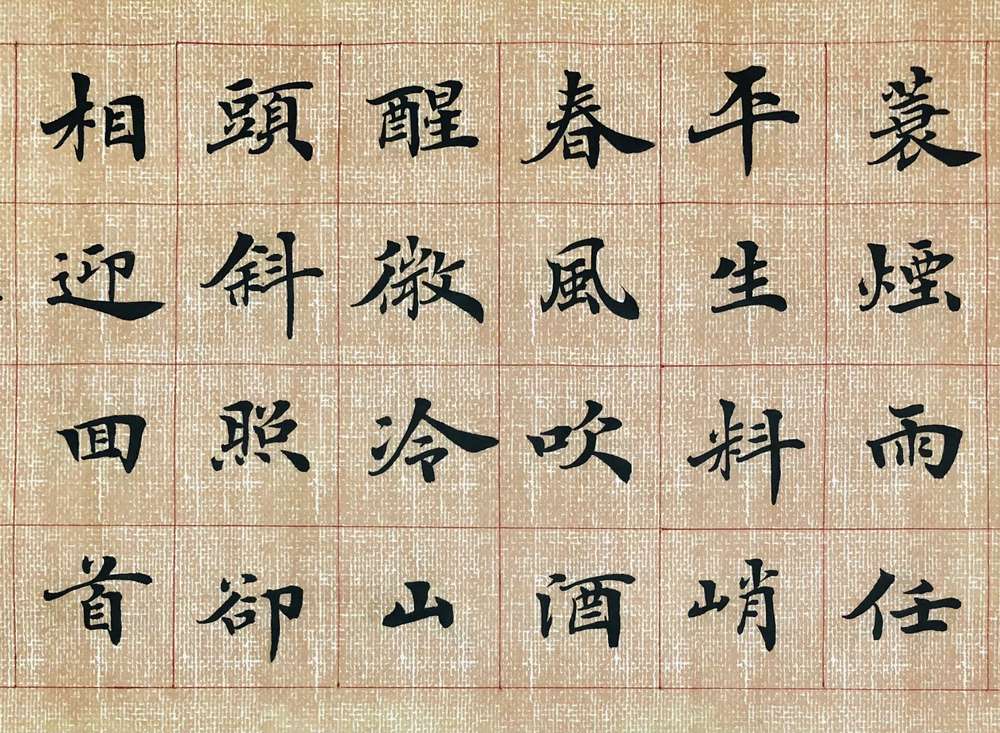 蓑煙雨任
平生料峭
春風吹酒
醒微冷山
頭斜照卻
相迎回首